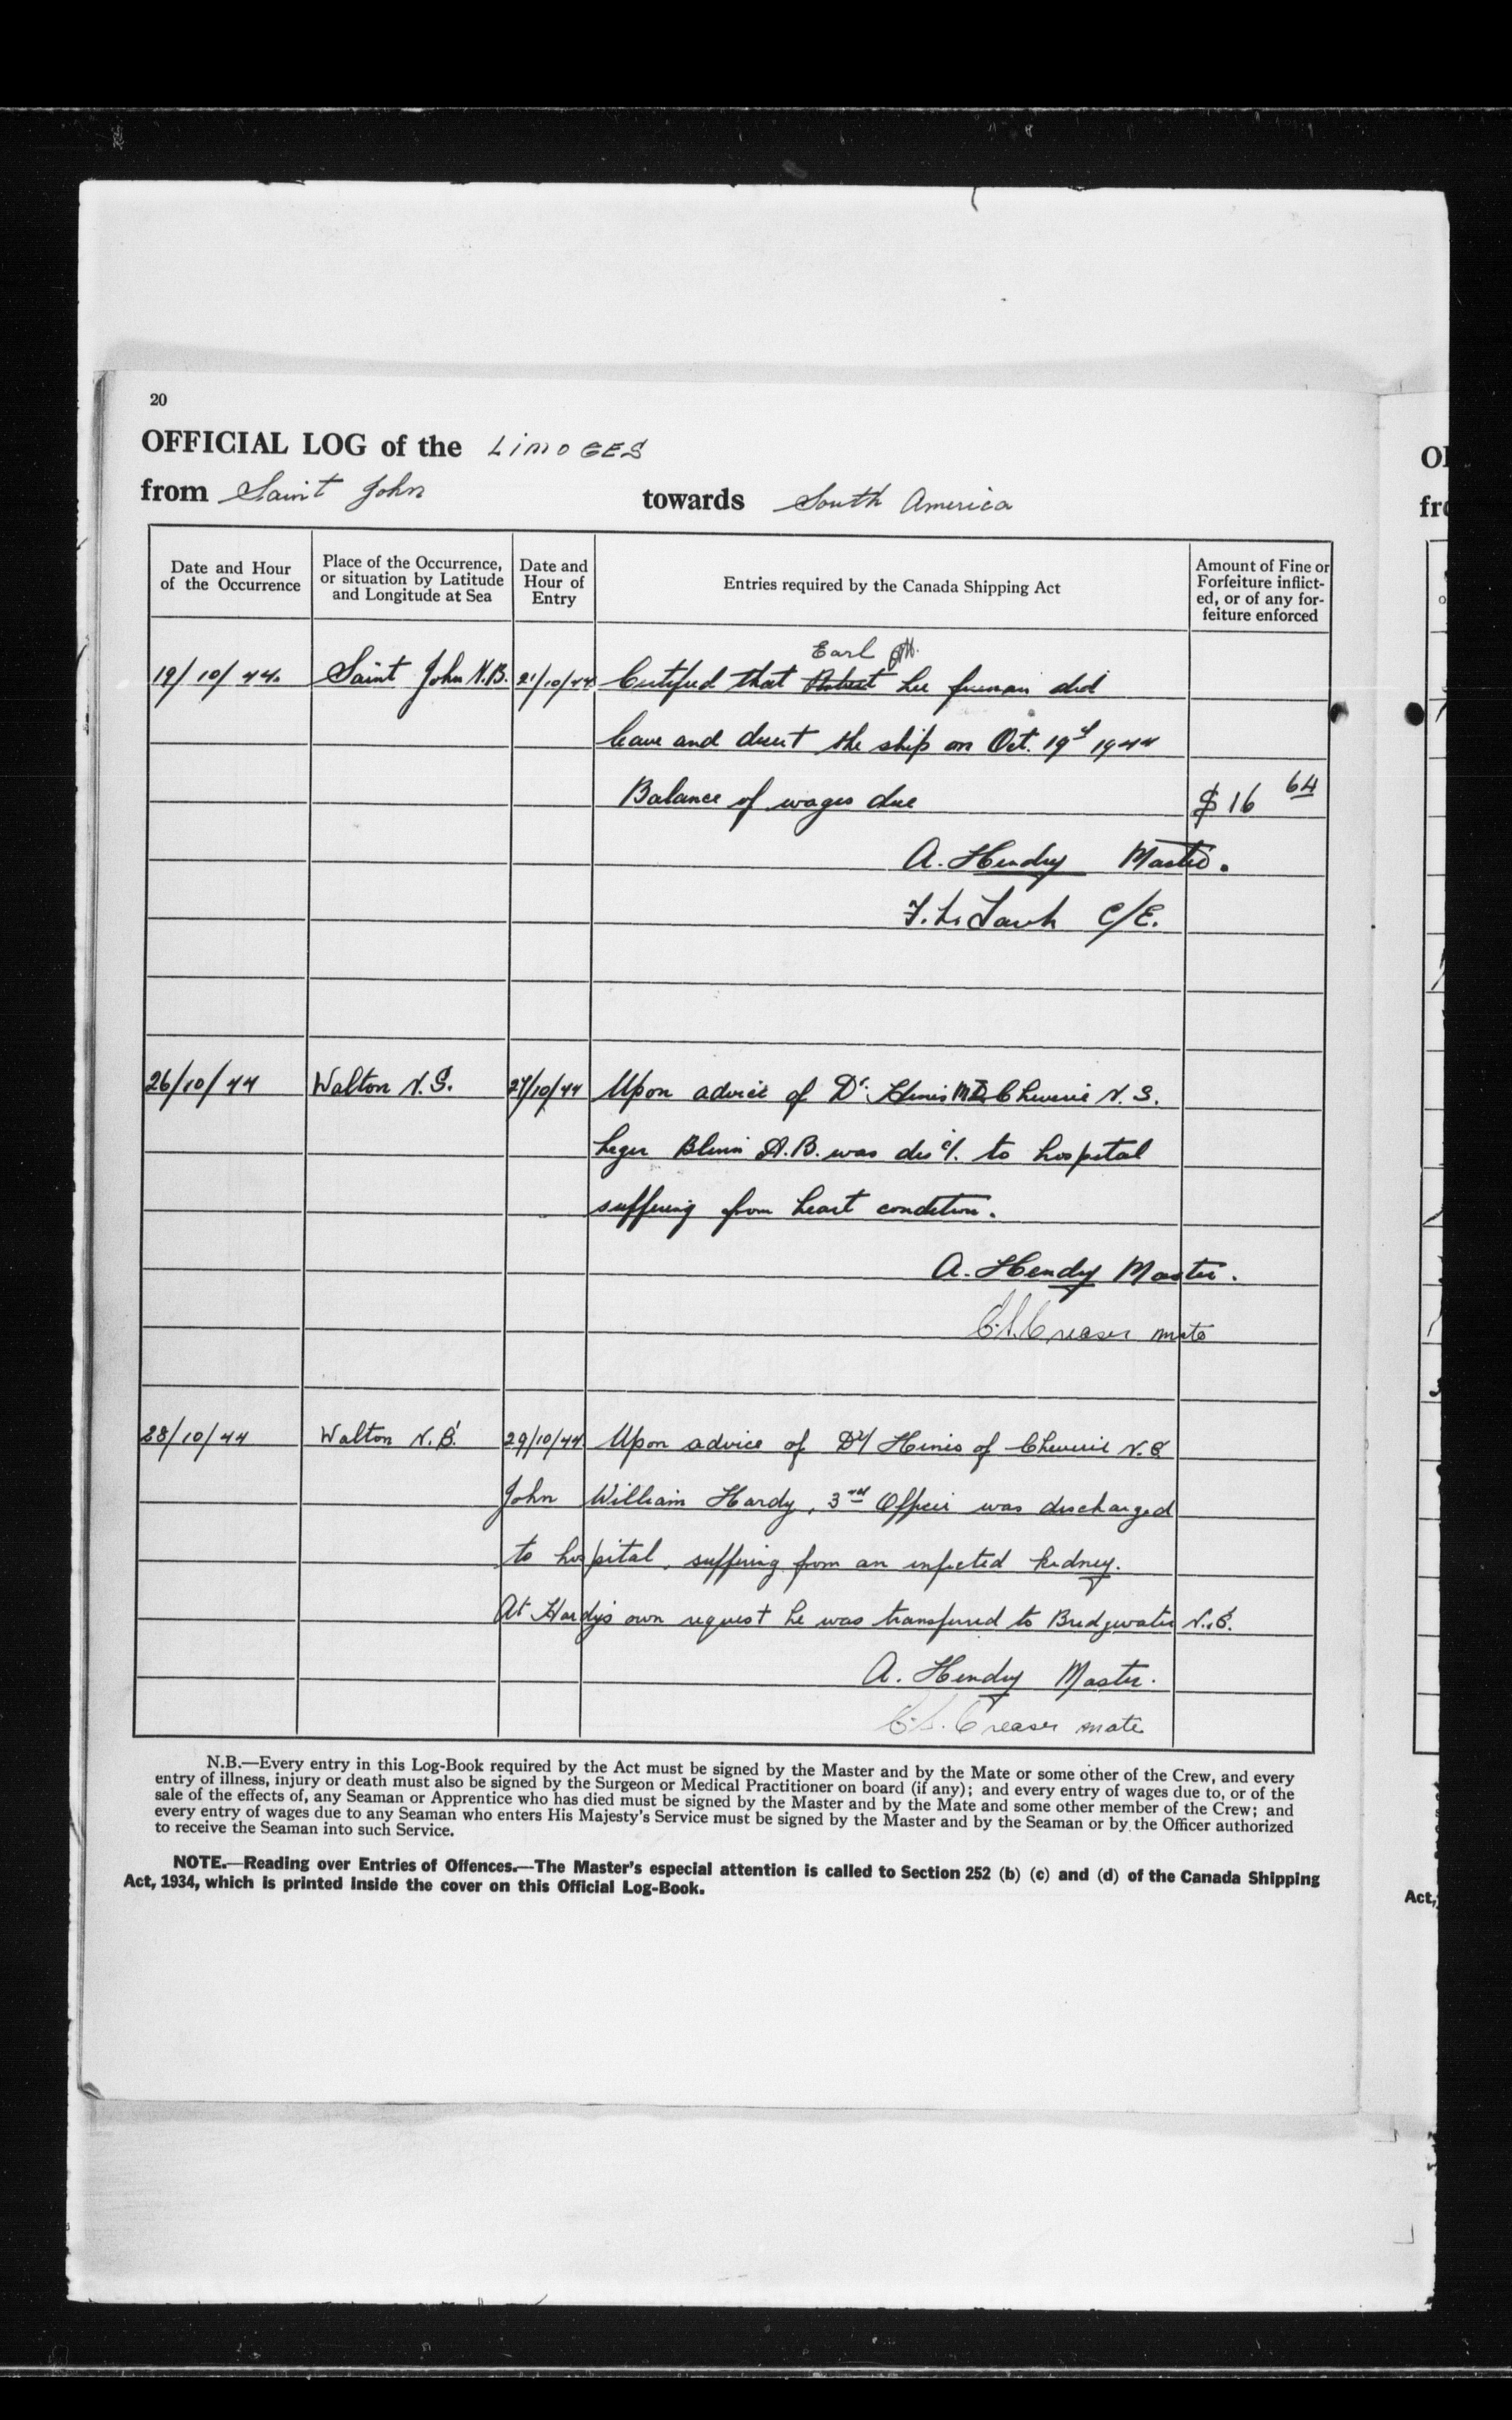 20
OFFICIAL LOG of the LIMOGES
from Saint John towards South America
Date and Hour of the Occurrence
Place of the Occurrence, or situation by Latitude and Longitude at Sea
Date and Hour of Entry
Entries required by the Canada Shipping Act
Amount of Fine or Forfeiture inflict-ed, or of any for-feiture enforced
Earl
19/10/44. Saint John N.B. 21/10/44 Certified that Lee fireman did
leave and desert the ship on Oct. 19 1944
Balance of wages due $16 64
A. Hendry Master.
C/E.
26/10/44 Walton N.S. 27/10/44 Upon advice of Dr. Hinis M.D. Cheverie N.S.
Leger Blinn A.B. was dis'c/. to hospital
suffering from heart condition.
A. Hendry Master.
Creaser mate
28/10/44 Walton N.S. 29/10/44 Upon advice of Dr/ Hinis of Cheverie N.S
John William Hardy, 3rd Officer was discharged
to hospital, suffering from an infected kidney.
At Hardy's own request he was transferred to Bridgwater N.S.
A. Hendry Master.
Creaser mate
N.B.—Every entry in this Log-Book required by the Act must be signed by the Master and by the Mate or some other of the Crew, and every
entry of illness, injury or death must also be signed by the Surgeon or Medical Practitioner on board (if any); and every entry of wages due to, or of the
sale of the effects of, any Seaman or Apprentice who has died must be signed by the Master and by the Mate and some other member of the Crew; and
every entry of wages due to any Seaman who enters His Majesty's Service must be signed by the Master and by the Seaman or by the Officer authorized
to receive the Seaman into such Service.
NOTE.—Reading over Entries of Offences.—The Master's especial attention is called to Section 252 (b) (c) and (d) of the Canada Shipping
Act, 1934, which is printed inside the cover on this Official Log-Book.
Act,